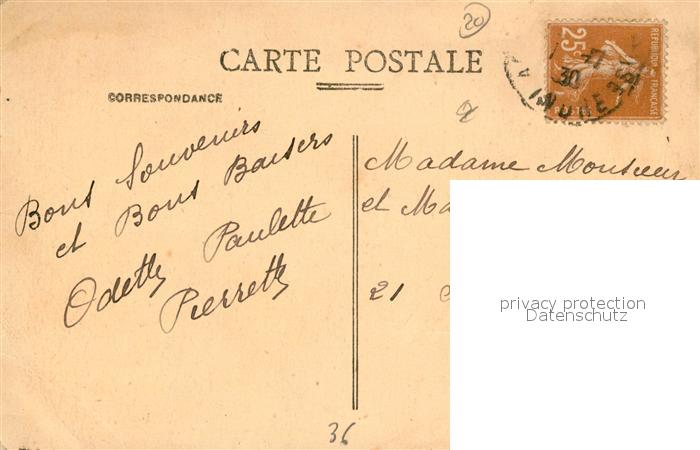 20
CARTE POSTALE
25c
REPUBLIQUE FRANÇAISE
POSTES
30
CORRESPONDANCE
Bons Souvenirs
et Bons Baisers
Odette Paulette
Pierrette
Madame Monsieur
et
21
privacy protection
Datenschutz
36